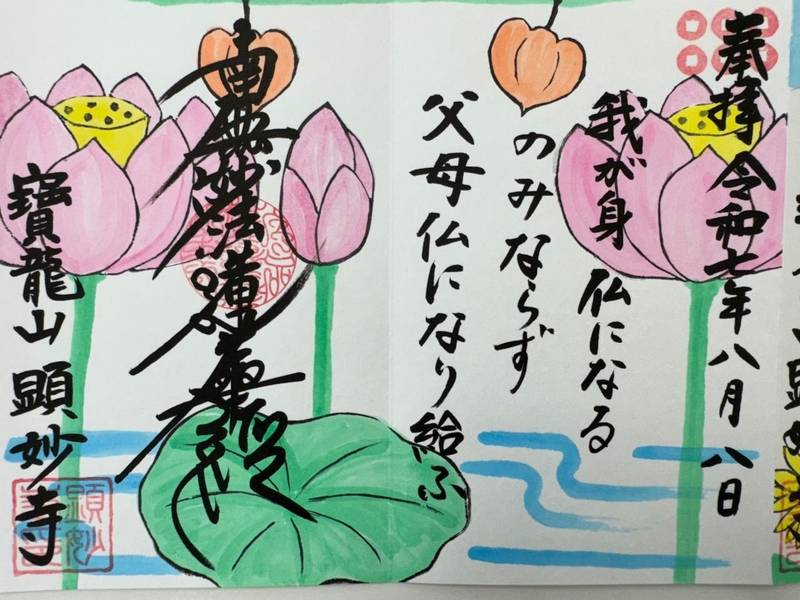 奉拝 令和七年八月八日
我が身 仏になる
のみならず
父母仏になり給ふ
南無妙法蓮華経
寶龍山 顕妙寺
顕妙